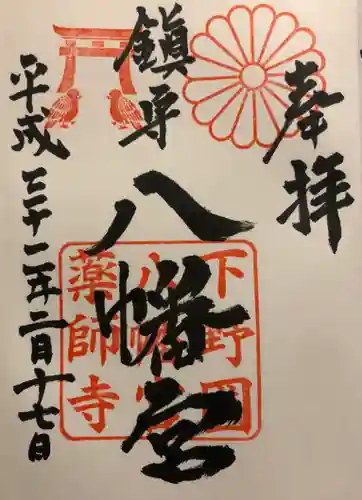 奉拝
鎮
八幡宮
下野国
八幡宮
薬師寺
平成三十一年二月十七日